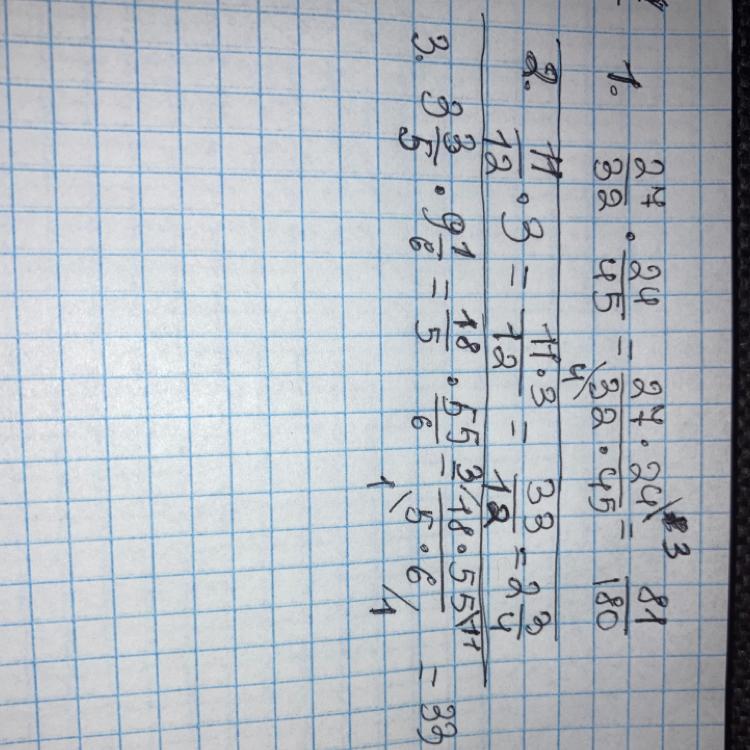 1. 27/32 · 24/45 = 27·24/32·45 = 81/180 3 4
2. 11/12 · 3 = 11·3/12 = 33/12 = 2 3/4
3. 3 3/5 · 9 1/6 = 18/5 · 55/6 = 18·55/5·6 = 33 3 11 1 1